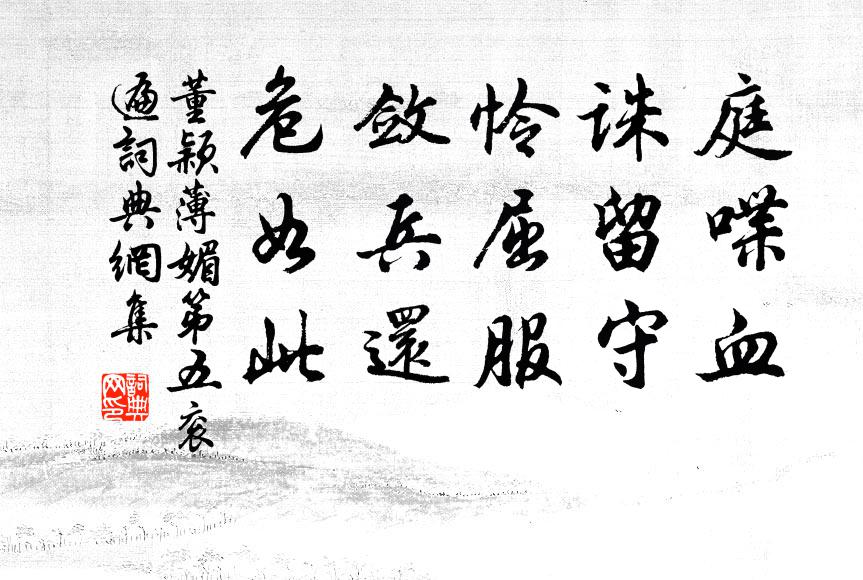 庭喋血
誅留守
憐屈服
斂兵還
危如此
董穎薄媚第五衮
遍詞典網集
詞典网印